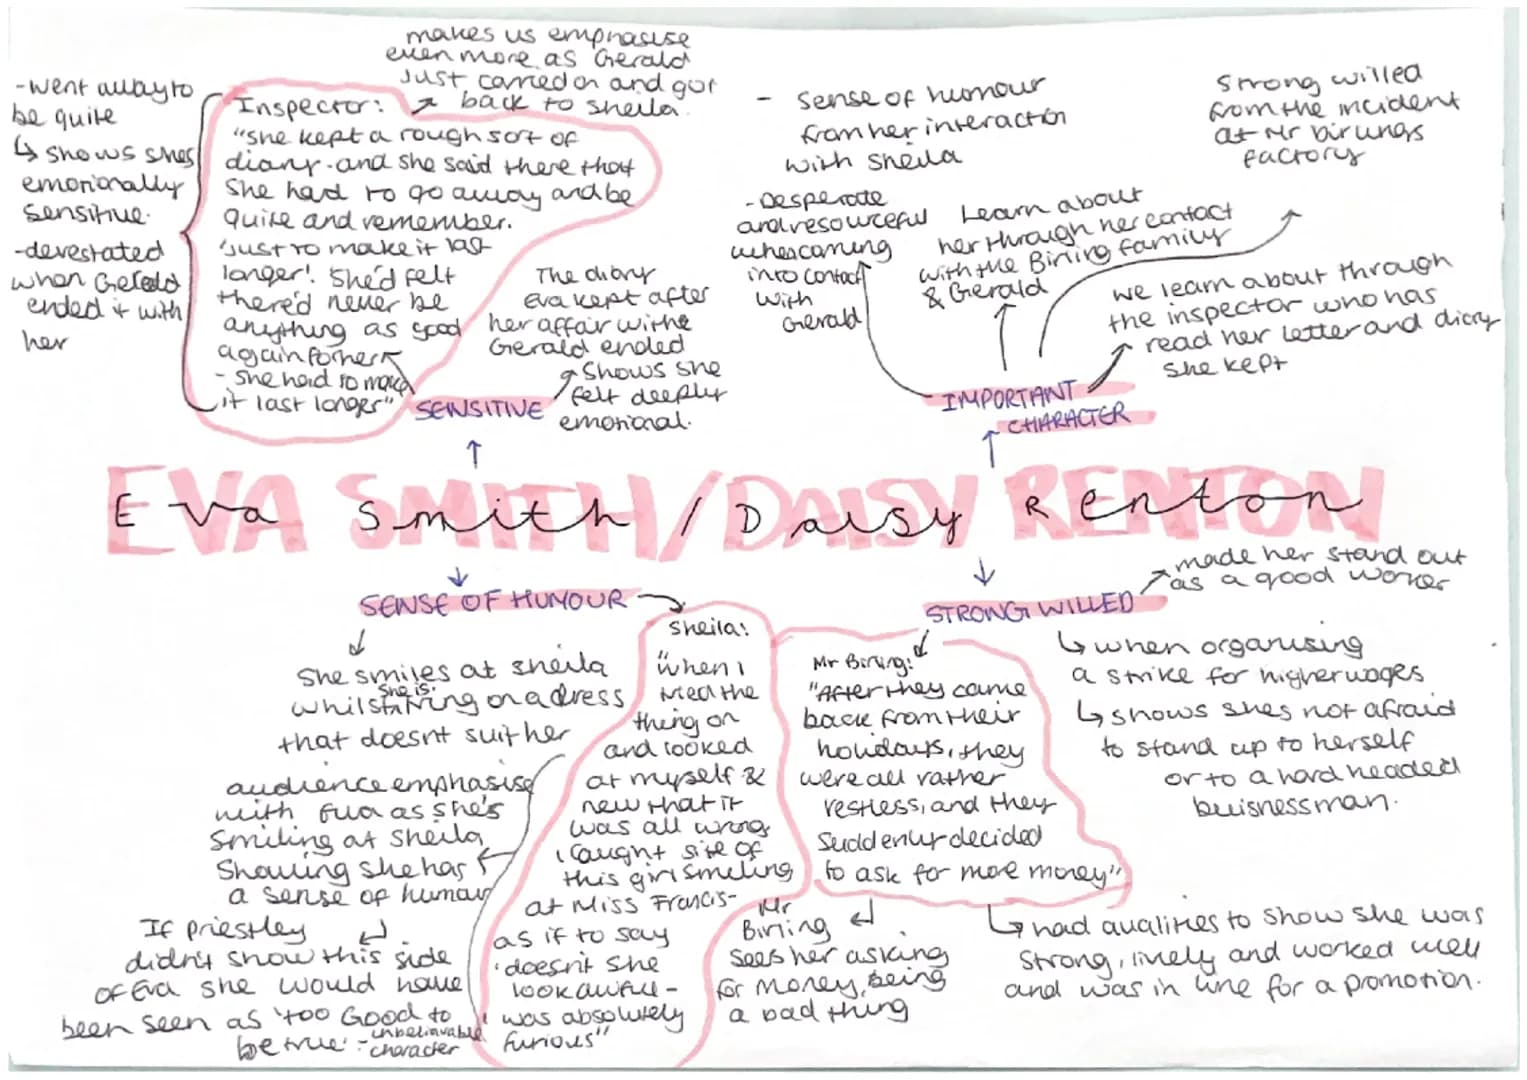 makes us emphasise
even more as Gerald
Just carried on and got
back to sheila.
-went away to
be quite
↳ shows shes
emotionally
sensitive.
-devestated
when Gerald
ended it with
her
Inspector:
"she kept a rough sort of
diary. and she said there that
she had to go away and be
quite and remember.
'Just to make it last
longer'. She'd felt
there'd never be
anything as good
again for her
- she had to make
it last longer"
The diary
Eva kept after
her affair withe
Gerald ended
Shows she
felt deeply
emotional.
SENSITIVE
- sense of humour
from her interaction
with sheila
Strong willed
from the incident
at Mr birlings
factory
-Desperate
and resourceful
when coming
into contact
with
Gerald
Learn about
her through her contact
with the Birling family
& Gerald
we learn about through
the inspector who has
read her letter and diary
she kept
IMPORTANT
CHARACTER
EVA SMITH/DAISY RENTON
Eva Smith / Daisy Renton
SENSE OF HUMOUR
She smiles at sheila
whilst she is trying on a dress
that doesnt suit her
audience emphasise
with Eva as she's
smiling at sheila
Showing she has
a sense of humour
If priestley
didn't show this side
of Eva she would have
been seen as 'too Good to
be true' - unbelievable
character
sheila:
"when I
tried the
thing on
and looked
at myself &
new that it
was all wrong
I caught site of
this girl smiling
at Miss Francis-
as if to say
'doesn't she
look awful -
was absolutely
furious"
STRONG WILLED
made her stand out
as a good worker
Mr Birling:
"After they came
back from their
holidays, they
were all rather
restless, and they
suddenly decided
to ask for more money"
Mr
Birling
sees her asking
for money, being
a bad thing
↳ when organising
a strike for higher wages
↳ shows shes not afraid
to stand up to herself
or to a hard headed
buisnessman.
↳ had qualities to show she was
strong, lively and worked well
and was in line for a promotion.